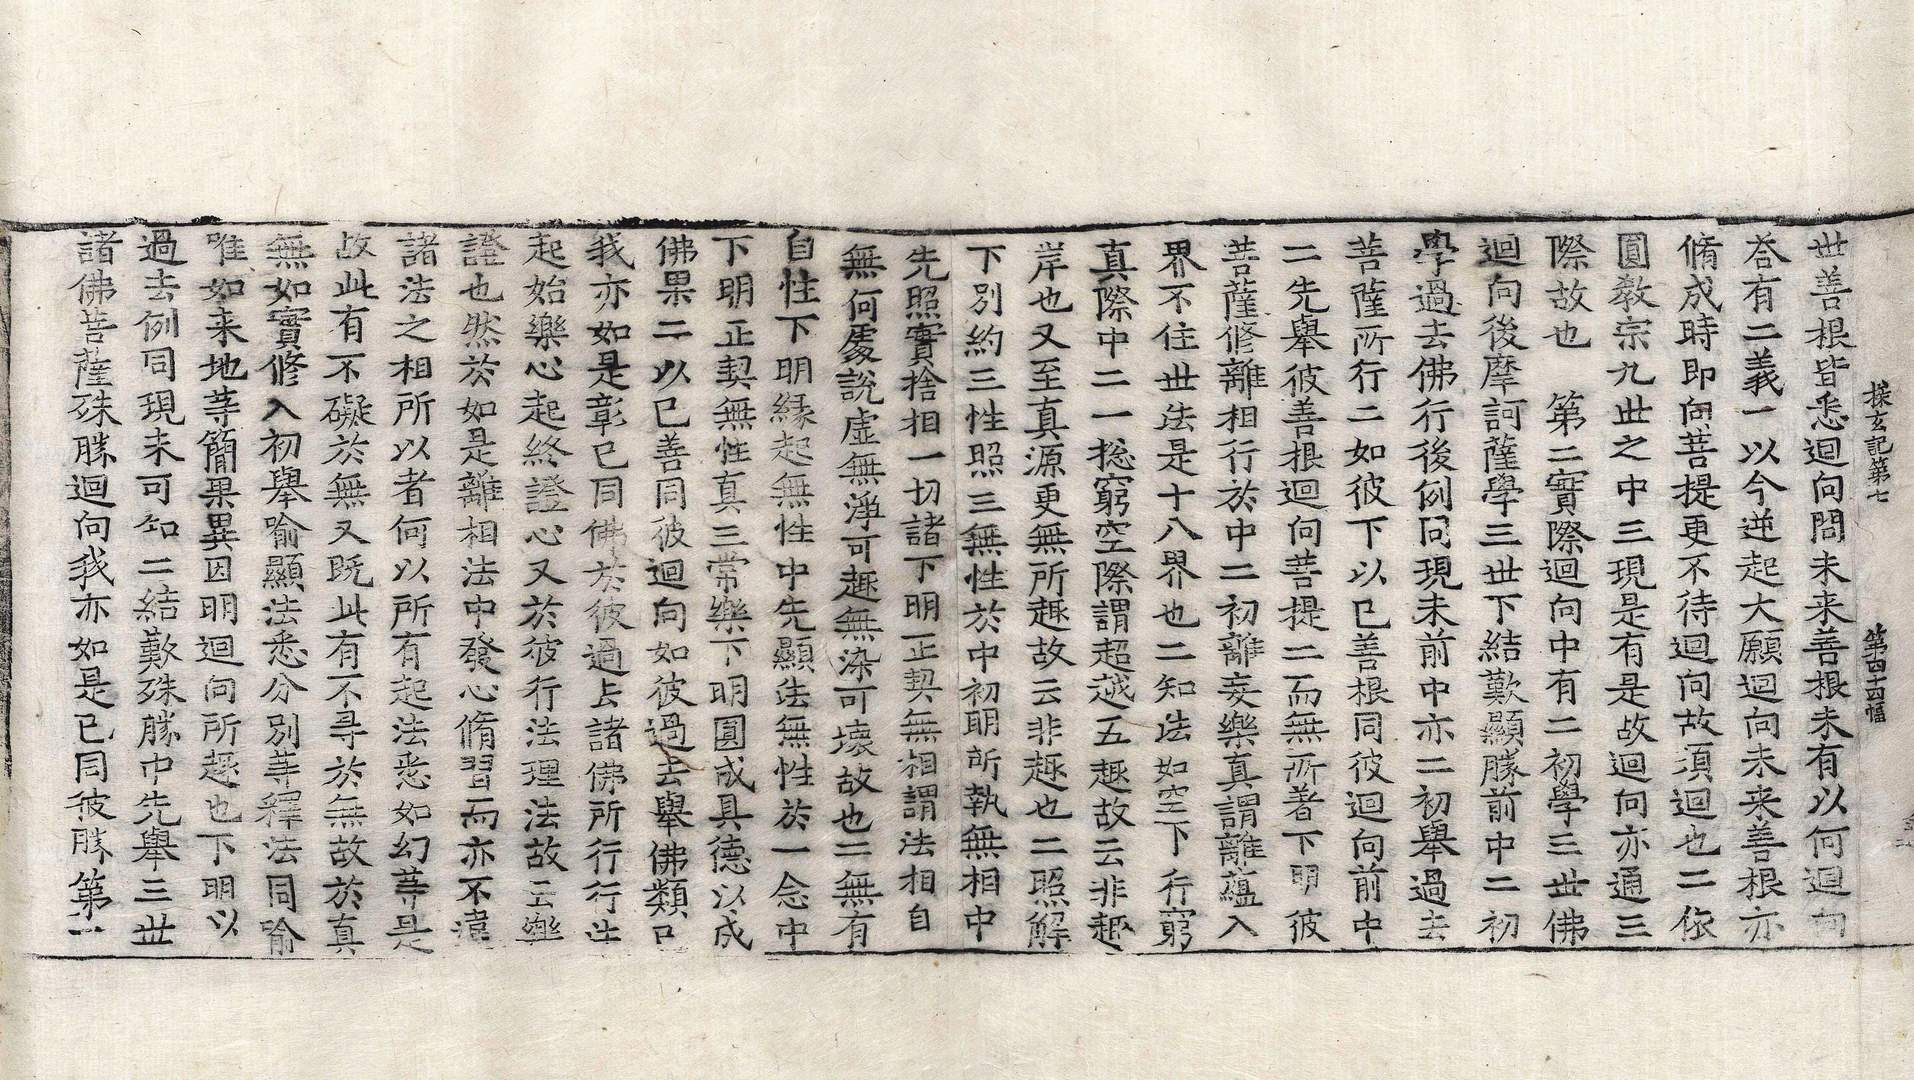 探玄記第七 第四十四幅
世善根皆悉迴向問未来善根未有以何迴向
荅有二義一以今逆起大願迴向未来善根亦
脩成時即向菩提更不待迴向故須迴也二依
圓教宗九世之中三現是有是故迴向亦通三
際故也 第二實際迴向中有二初學三世佛
迴向後摩訶薩學三世下結歎顯勝前中二初
學過去佛行後例同現未前中亦二初舉過去
菩薩所行二如彼下以已善根同彼迴向前中
二先舉彼善根迴向菩提二而無所著下明彼
菩薩修離相行於中二初離妄樂真謂離蘊入
界不住世法是十八界也二知法如空下行窮
真際中二一捴窮空際謂超越五趣故云非趣
岸也又至真源更無所趣故云非趣也二照解
下別約三性照三無性於中初明所執無相中
先照實捨相一切諸下明正契無相謂法相自
無何處說虛無淨可趣無染可壞故也二無有
自性下明緣起無性中先顯法無性於一念中
下明正契無性真三常樂下明圓成具德以成
佛果二以已善同彼迴向如彼過去舉佛類已
我亦如是彰已同佛於彼過去諸佛所行行法
起始樂心起終證心又於彼行法理法故云樂
證也然於如是離相法中發心脩習而亦不違
諸法之相所以者何以所有起法悉如幻等是
故此有不礙於無又既此有不尋於無故於真
無如實修入初舉喻顯法悉分別等釋法同喻
唯如来地等簡果異因明迴向所趣也下明以
過去例同現未可知二結歎殊勝中先舉三世
諸佛菩薩殊勝迴向我亦如是已同彼勝第二